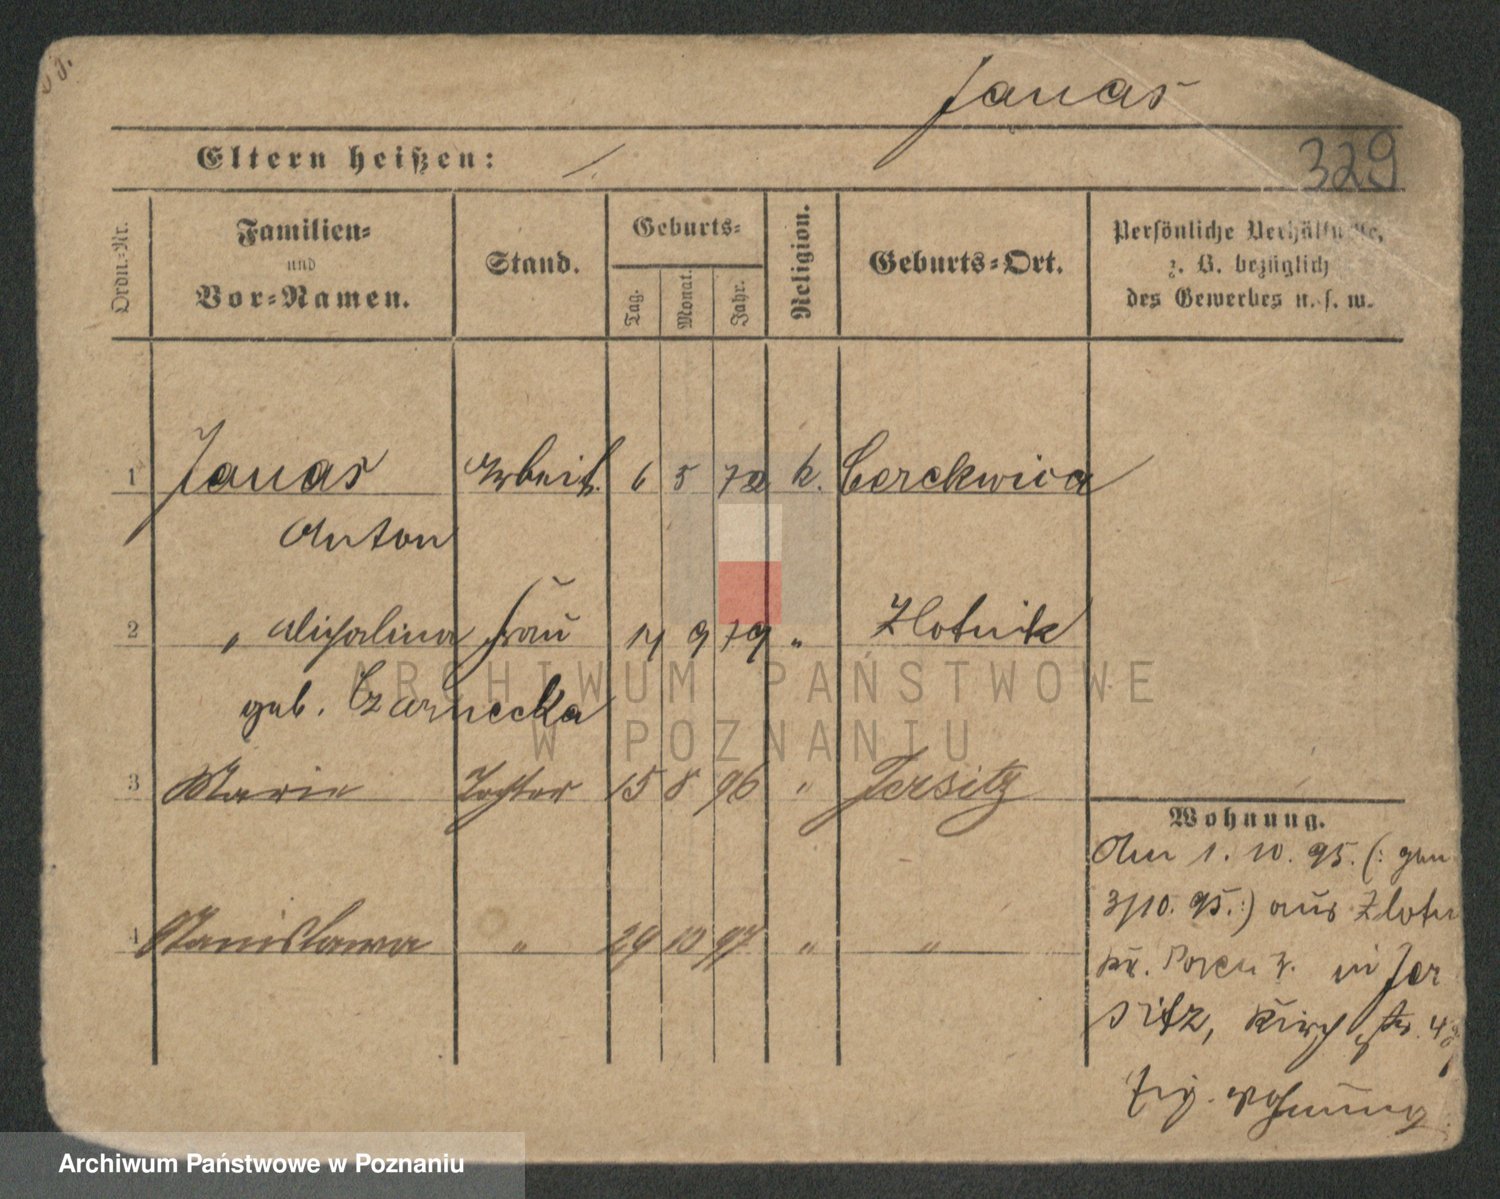 Janas
329
Eltern heißen: /
Ordn.-Nr.
Familien-
und
Vor-Namen.
Stand.
Geburts-
Tag.
Monat.
Jahr.
Religion.
Geburts-Ort.
Persönliche Verhältnisse,
z. B. bezüglich
des Gewerbes u. s. w.
1 Janas Arbeit. 6 5 72 k. Cerekwica
Anton
2 " Michalina Frau 14 9 79 " Zlotnik
geb. Czarnecka
3 Marie Tochter 15 8 96 " Jersitz
4 Stanislawa " 29 10 97 " "
Wohnung.
Am 1. 10. 95. (: gem
3/10. 95. :) aus Zlotn
Kr. Posen in Jer
sitz, Kirchstr. 4
Eig. Wohnung
ARCHIWUM PAŃSTWOWE
W POZNANIU
Archiwum Państwowe w Poznaniu